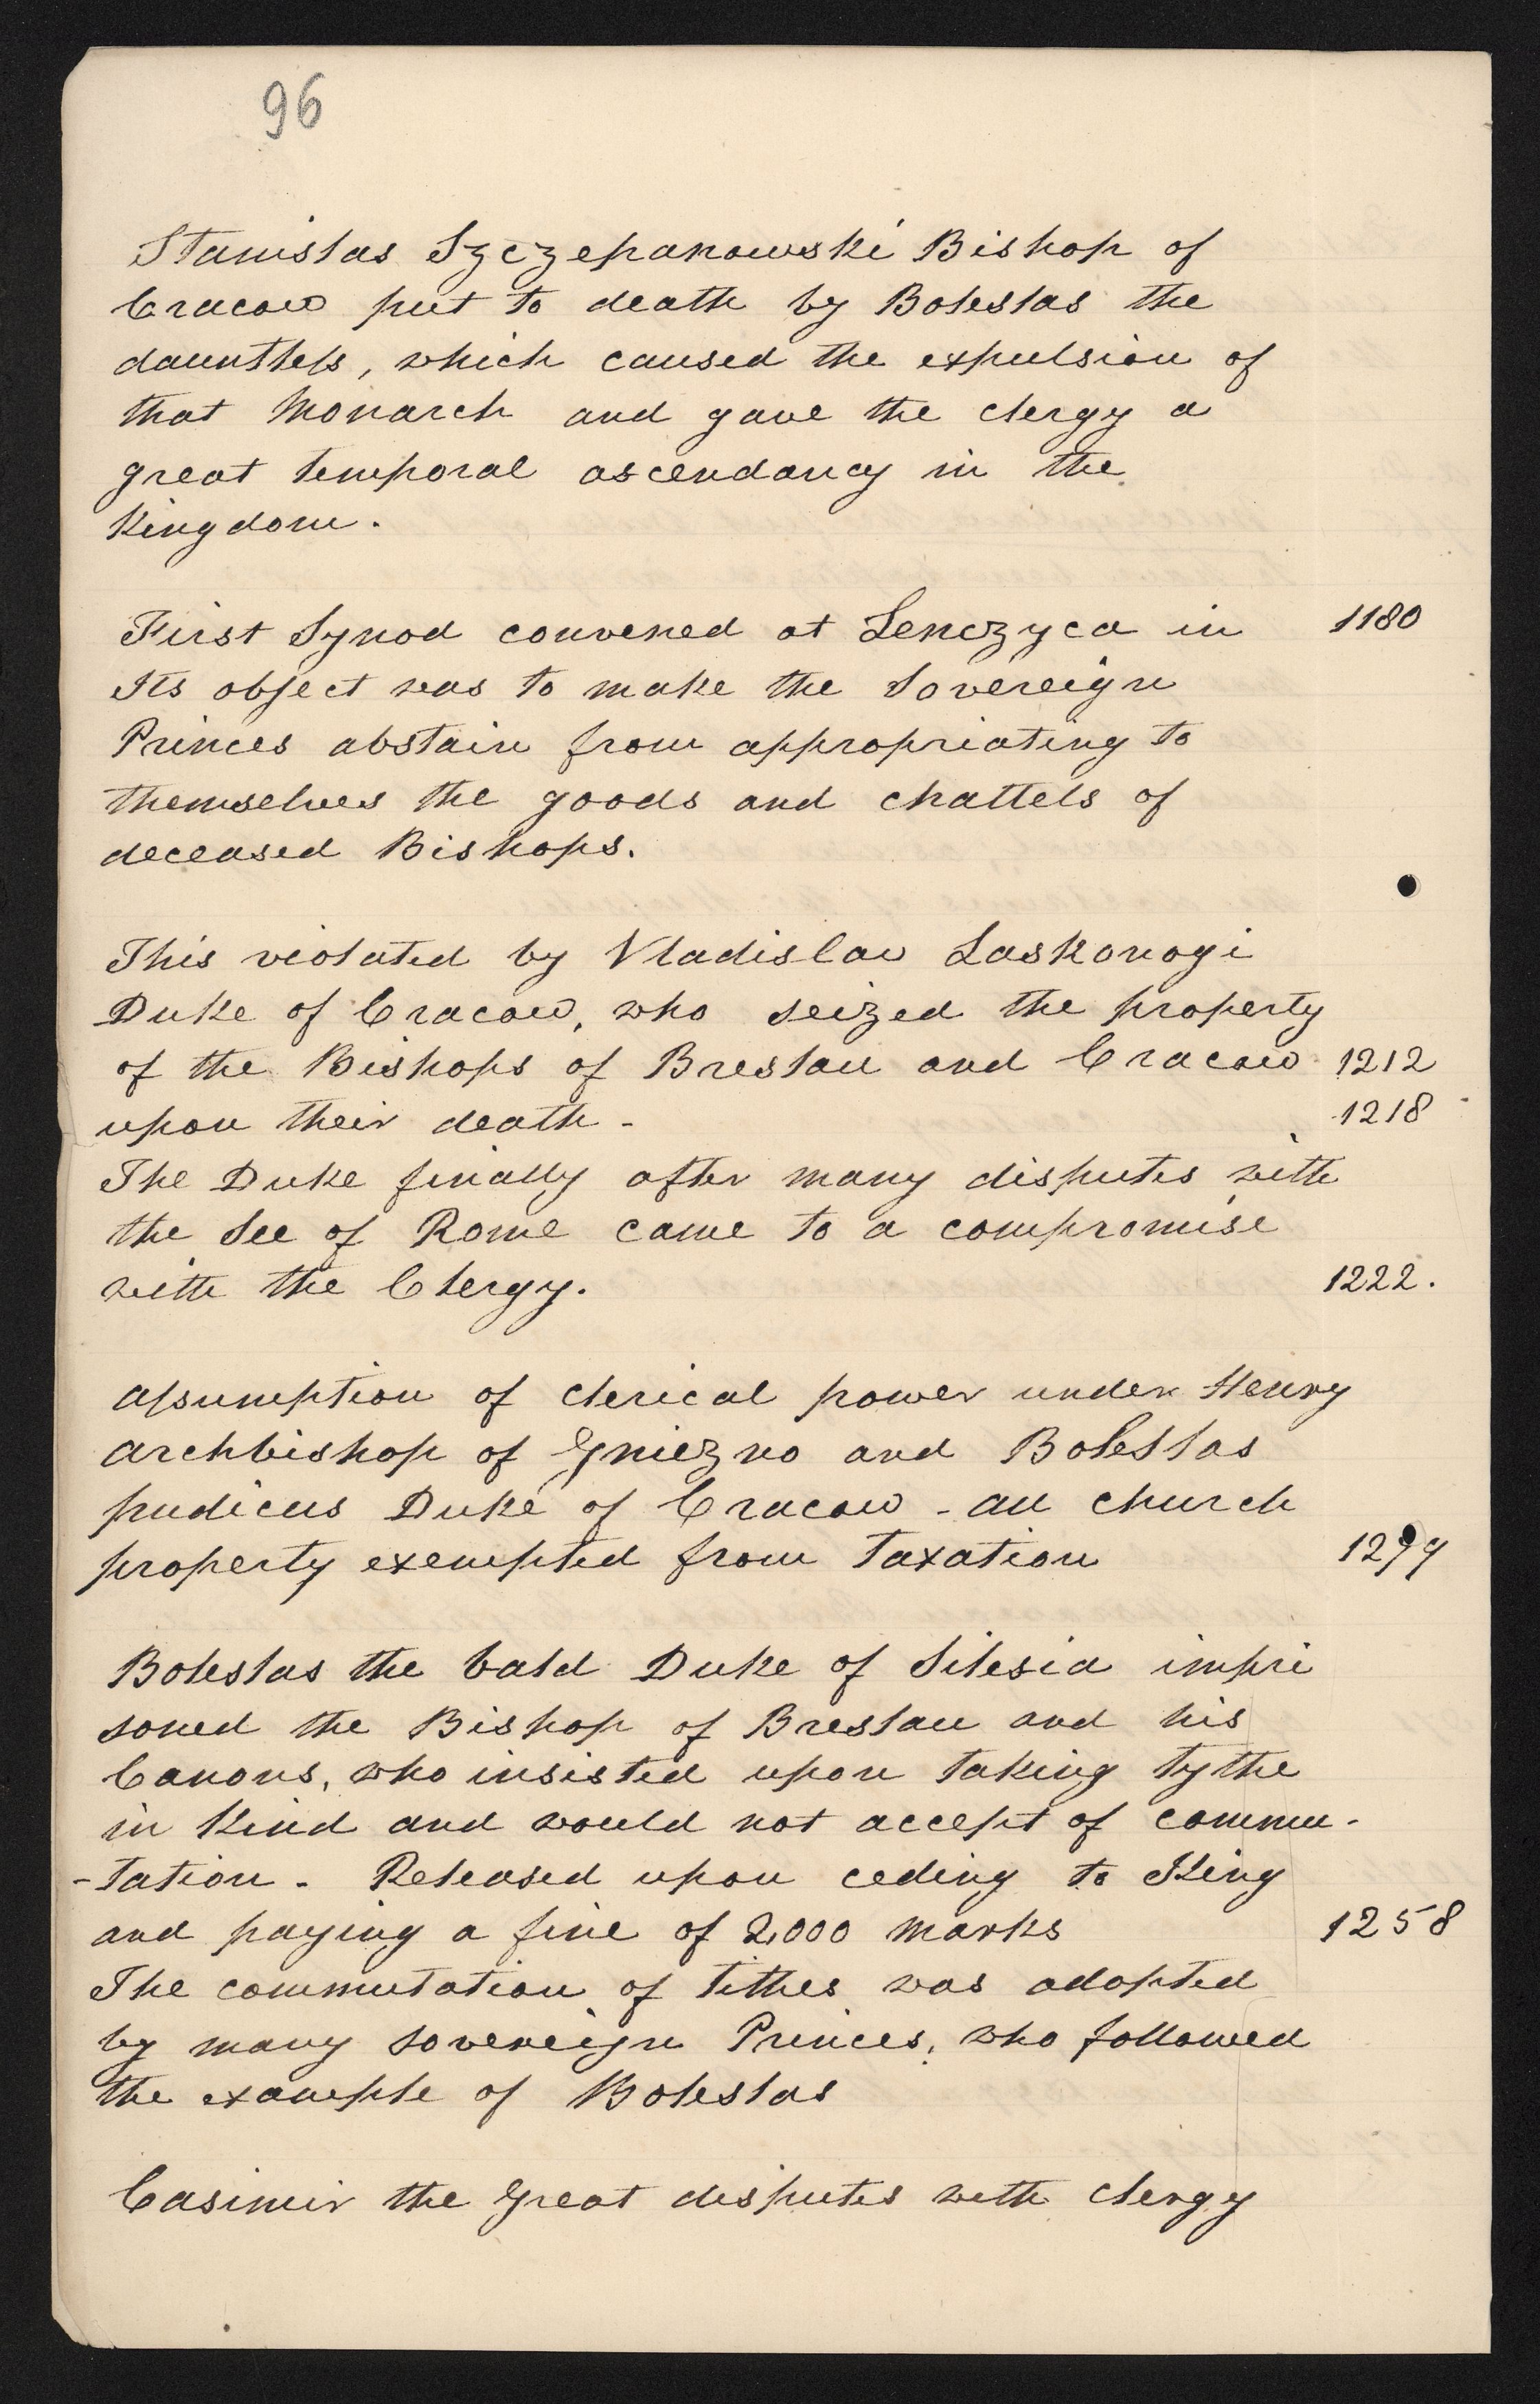 96
Stanislas Szczepanowski Bishop of
Cracow put to death by Boleslas the
dauntless, which caused the expulsion of
that Monarch and gave the clergy a
great temporal ascendancy in the
Kingdom.
First Synod convened at Lenczyca in 1180
Its object was to make the Sovereign
Princes abstain from appropriating to
themselves the goods and chattels of
deceased Bishops.
This violated by Vladislaw Laskonogi
Duke of Cracow, who seized the property
of the Bishops of Breslau and Cracow 1212
upon their death - 1218
The Duke finally after many disputes with
the See of Rome came to a compromise
with the Clergy. 1222.
assumption of clerical power under Henry
archbishop of Gniezno and Boleslas
pudicus Duke of Cracow - all church
property exempted from Taxation
Boleslas the bald Duke of Silesia impri
soned the Bishop of Breslau and his
Canons, who insisted upon taking tythe
in Kind and would not accept of commu-
-tation - Released upon ceding to King
and paying a fine of 2,000 marks 1258
The commutation of tithes was adopted
by many sovereign Princes, who followed
the example of Boleslas
Casimir the Great disputes with clergy